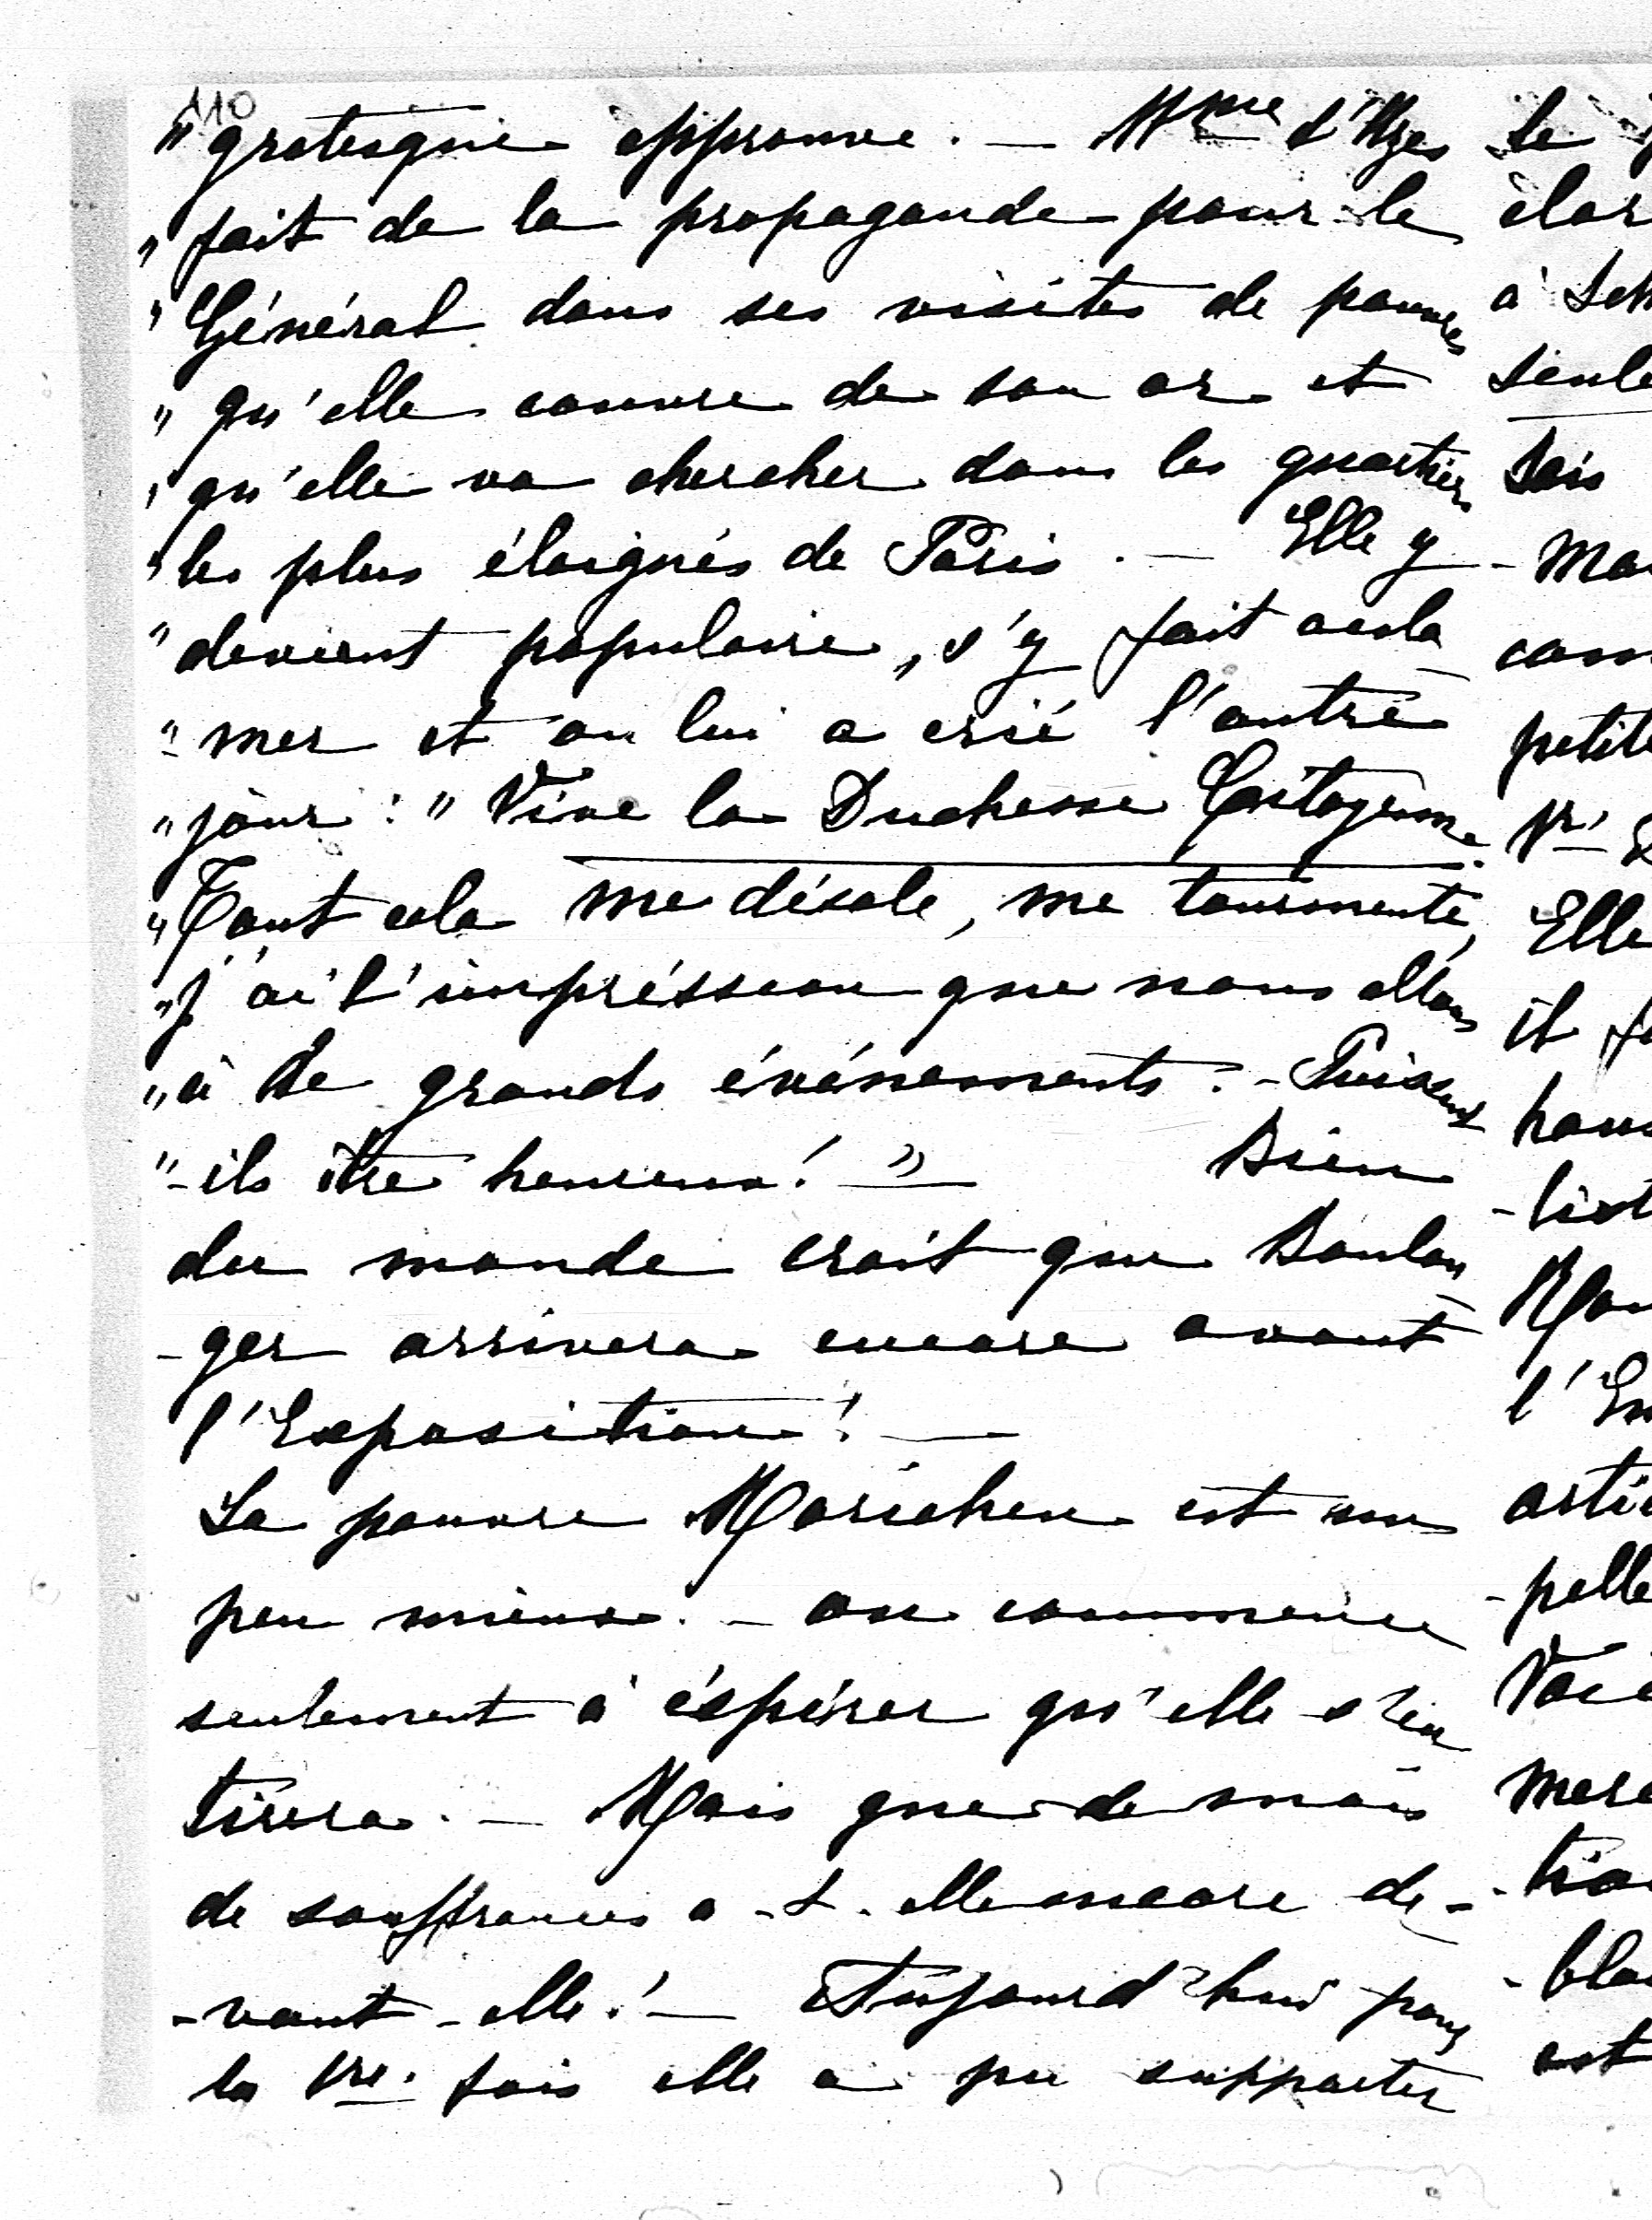 110
"grotesque approuve. — Mme d'Uzes
"fait de la propagande pour le
"Général dans ses visites de pauvres
"qu'elle couvre de son or et
"qu'elle va chercher dans les quartiers
"les plus éloignés de Paris. — Elle y
"devient populaire, s'y fait accla
"-mer et on lui a crié l'autre
"jour: "Vive la Duchesse Citoyenne.
"Tout cela me désole, me tourmente,
"J'ai l'impréssion que nous allons
"à de grands événements. - Puissent
"-ils être heureux! " — Bien
du monde croit que Boulan
-ger arrivera encore avant
l'Exposition! —
La pauvre Mariechen est un
peu mieux. - on commence
seulement à éspérer qu'elle s'en
tirera. — Mais que de mois
de souffrances a-t-elle encore de-
-vant-elle! — Aujourd'hui pour
la 1re. fois elle a pu supporter